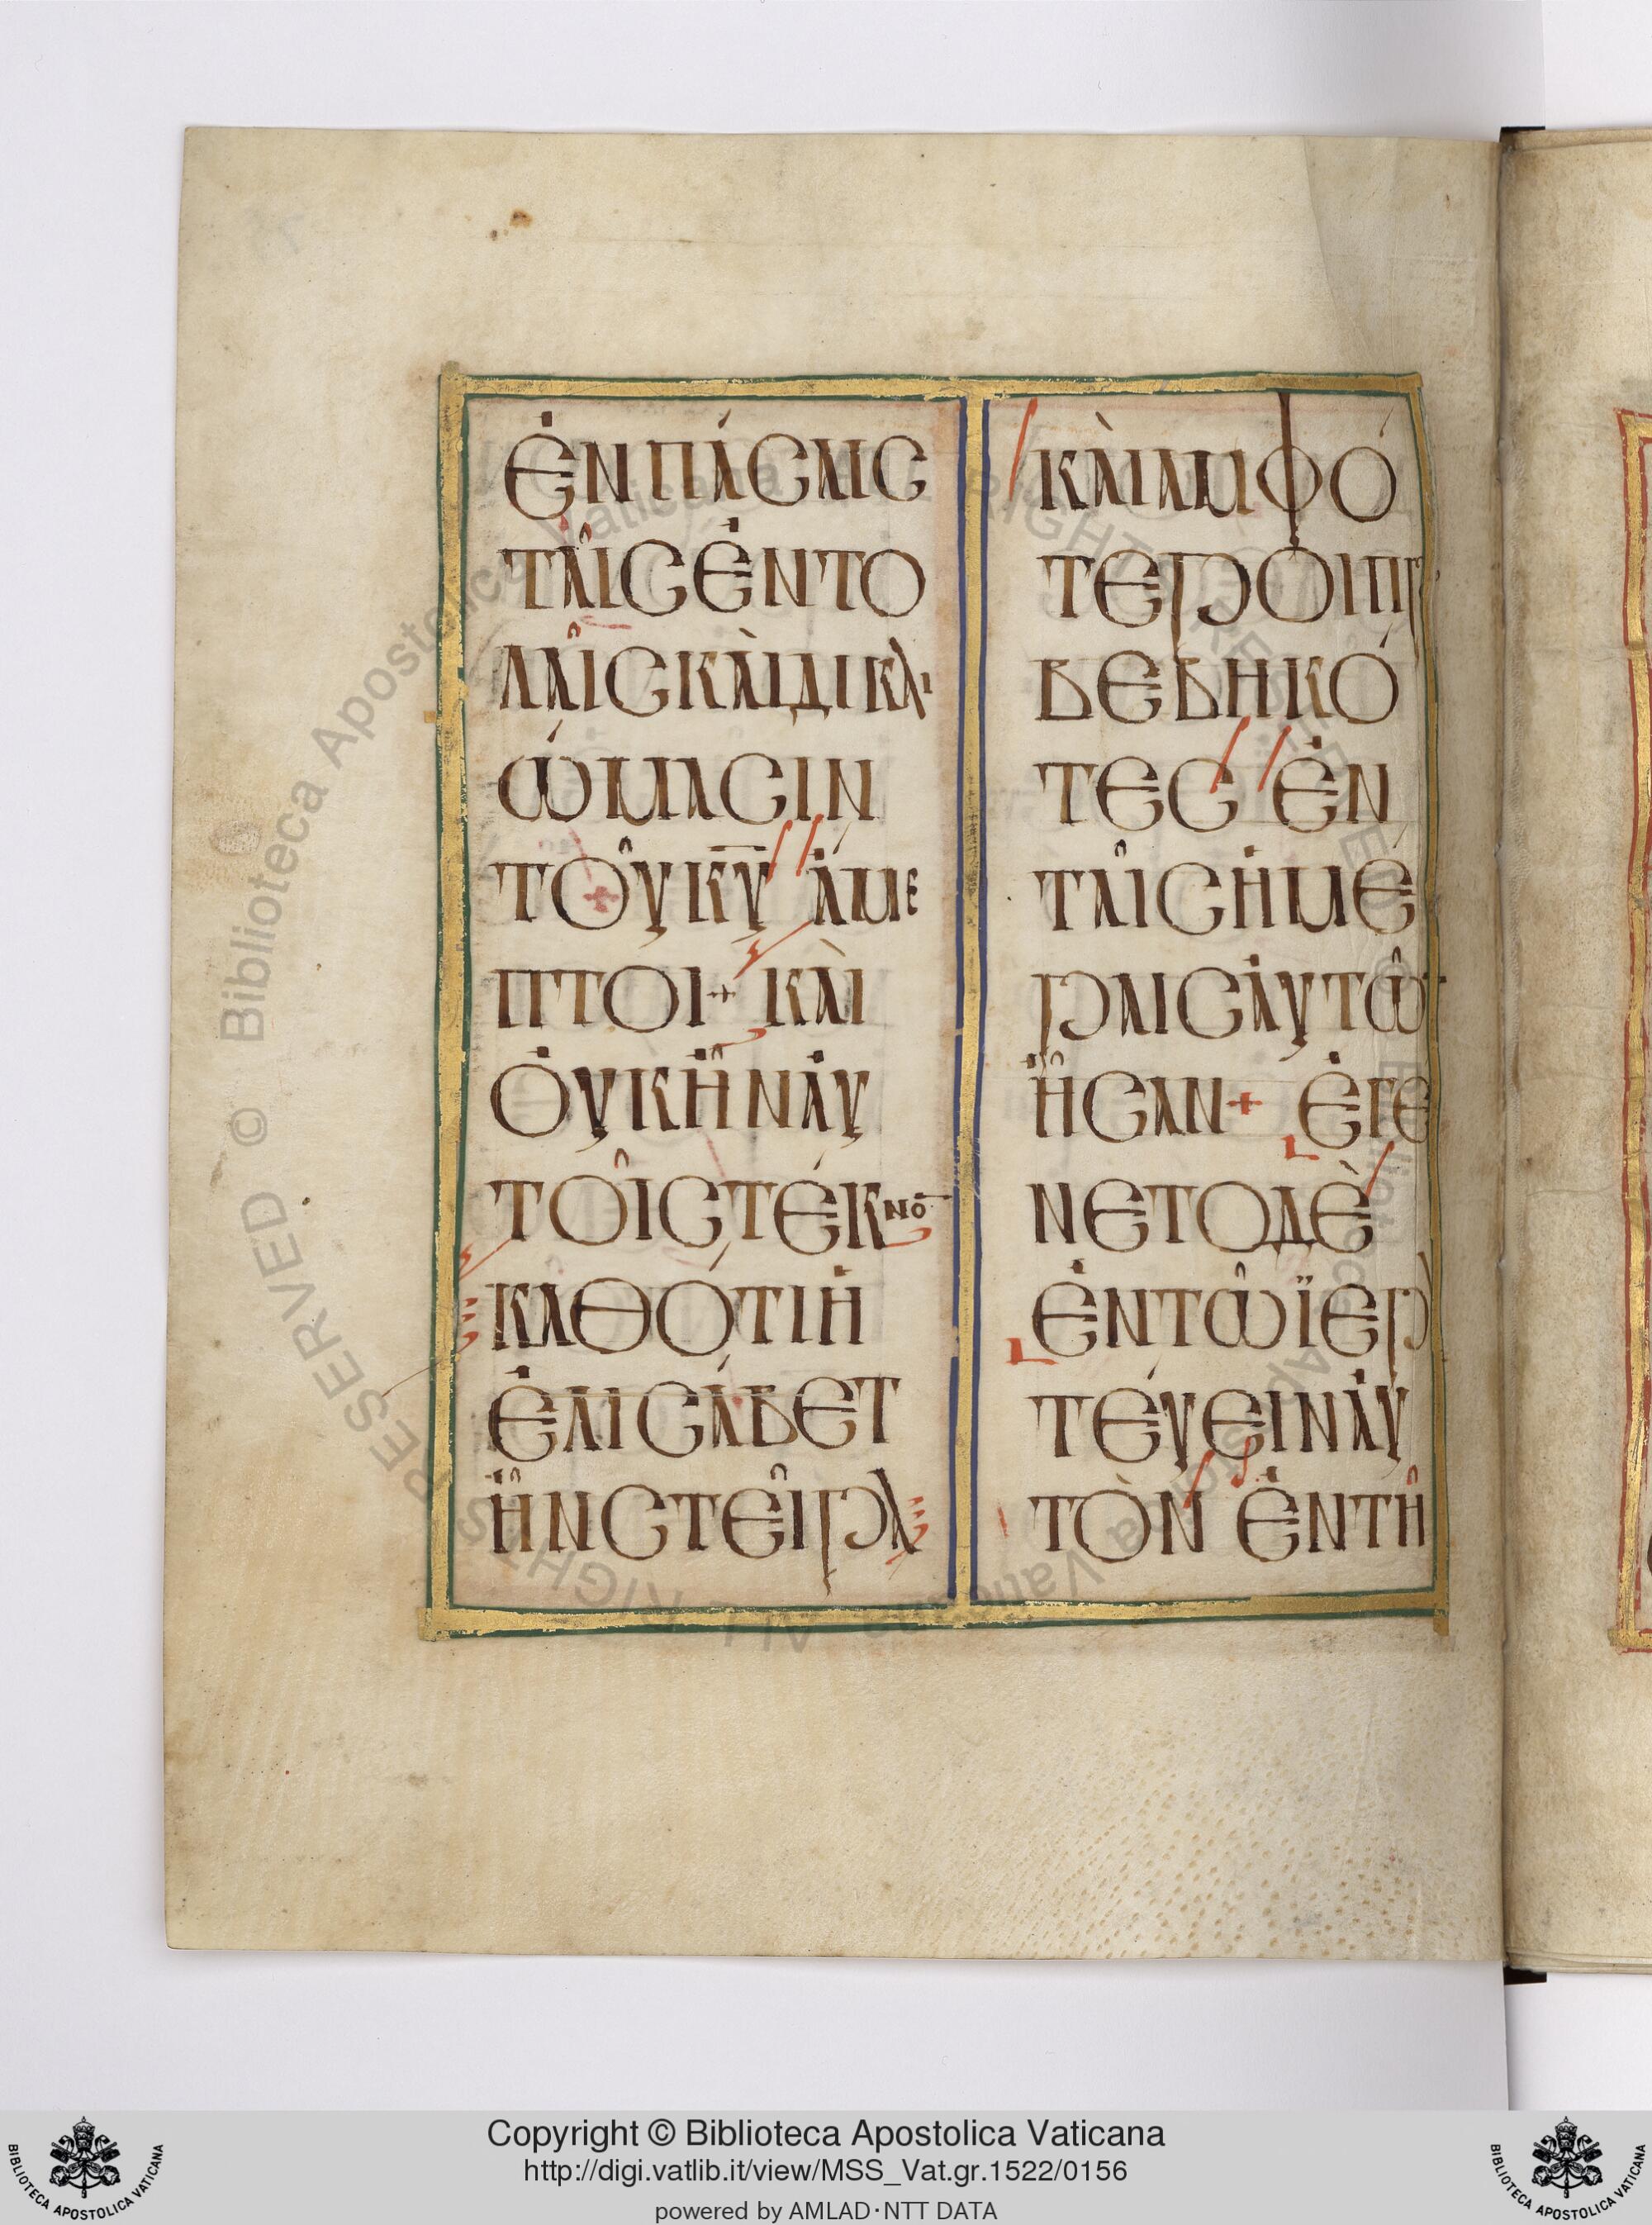 ἐν πάσαις
ταῖς ἐντο
λαῖς καὶ δικαι
ώμασιν
τοῦ κυ̅ ἄμε
πτοι + καὶ
οὐκ ἦν αὐ
τοῖς τέκνο̅
καθότι ἡ
ἐλισάβετ
ἦν στεῖρα
καὶ ἀμφό
τεροι πρ
βεβηκό
τες ἐν
ταῖς ἡμέ
ραις αὐτῶ
ἦσαν + ἐγέ
νετο δὲ
ἐν τῶ ϊερ
τεύειν αὐ
τὸν ἐν τῆ
Biblioteca Apostolica Vaticana ALL RIGHTS RESERVED ©
Copyright © Biblioteca Apostolica Vaticana
http://digi.vatlib.it/view/MSS_Vat.gr.1522/0156
powered by AMLAD·NTT DATA
BIBLIOTECA APOSTOLICA VATICANA
BIBLIOTECA APOSTOLICA VATICANA